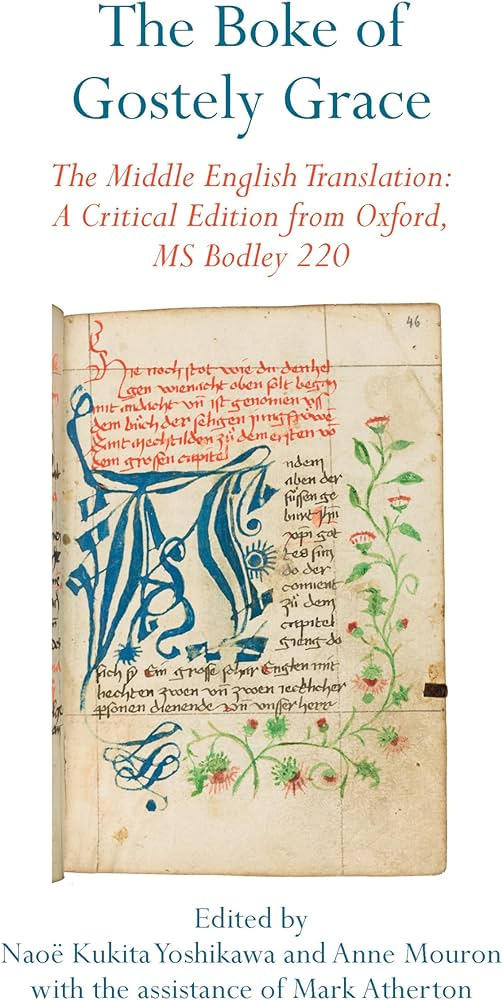 The Boke of
Gostely Grace
The Middle English Translation:
A Critical Edition from Oxford,
MS Bodley 220
46
Hie noch stot wie du den hel
gen wienacht oben solt began
mit andacht vn̄ ist genomen vss
dem bůch der seligen jungfrowe
Sant mechtilden zů dem ersten vo
dem grossen capitel
ndem
aben der
sůssen ge
burt
xpi got
tes sun
do der
convent
zů dem
capitel
gieng do
sach sy Ein grosse schar Englen mit
liechten zwen vn̄ zwen iecklicher
personen dienende vn̄ vnser herr
Edited by
Naoë Kukita Yoshikawa and Anne Mouron
with the assistance of Mark Atherton